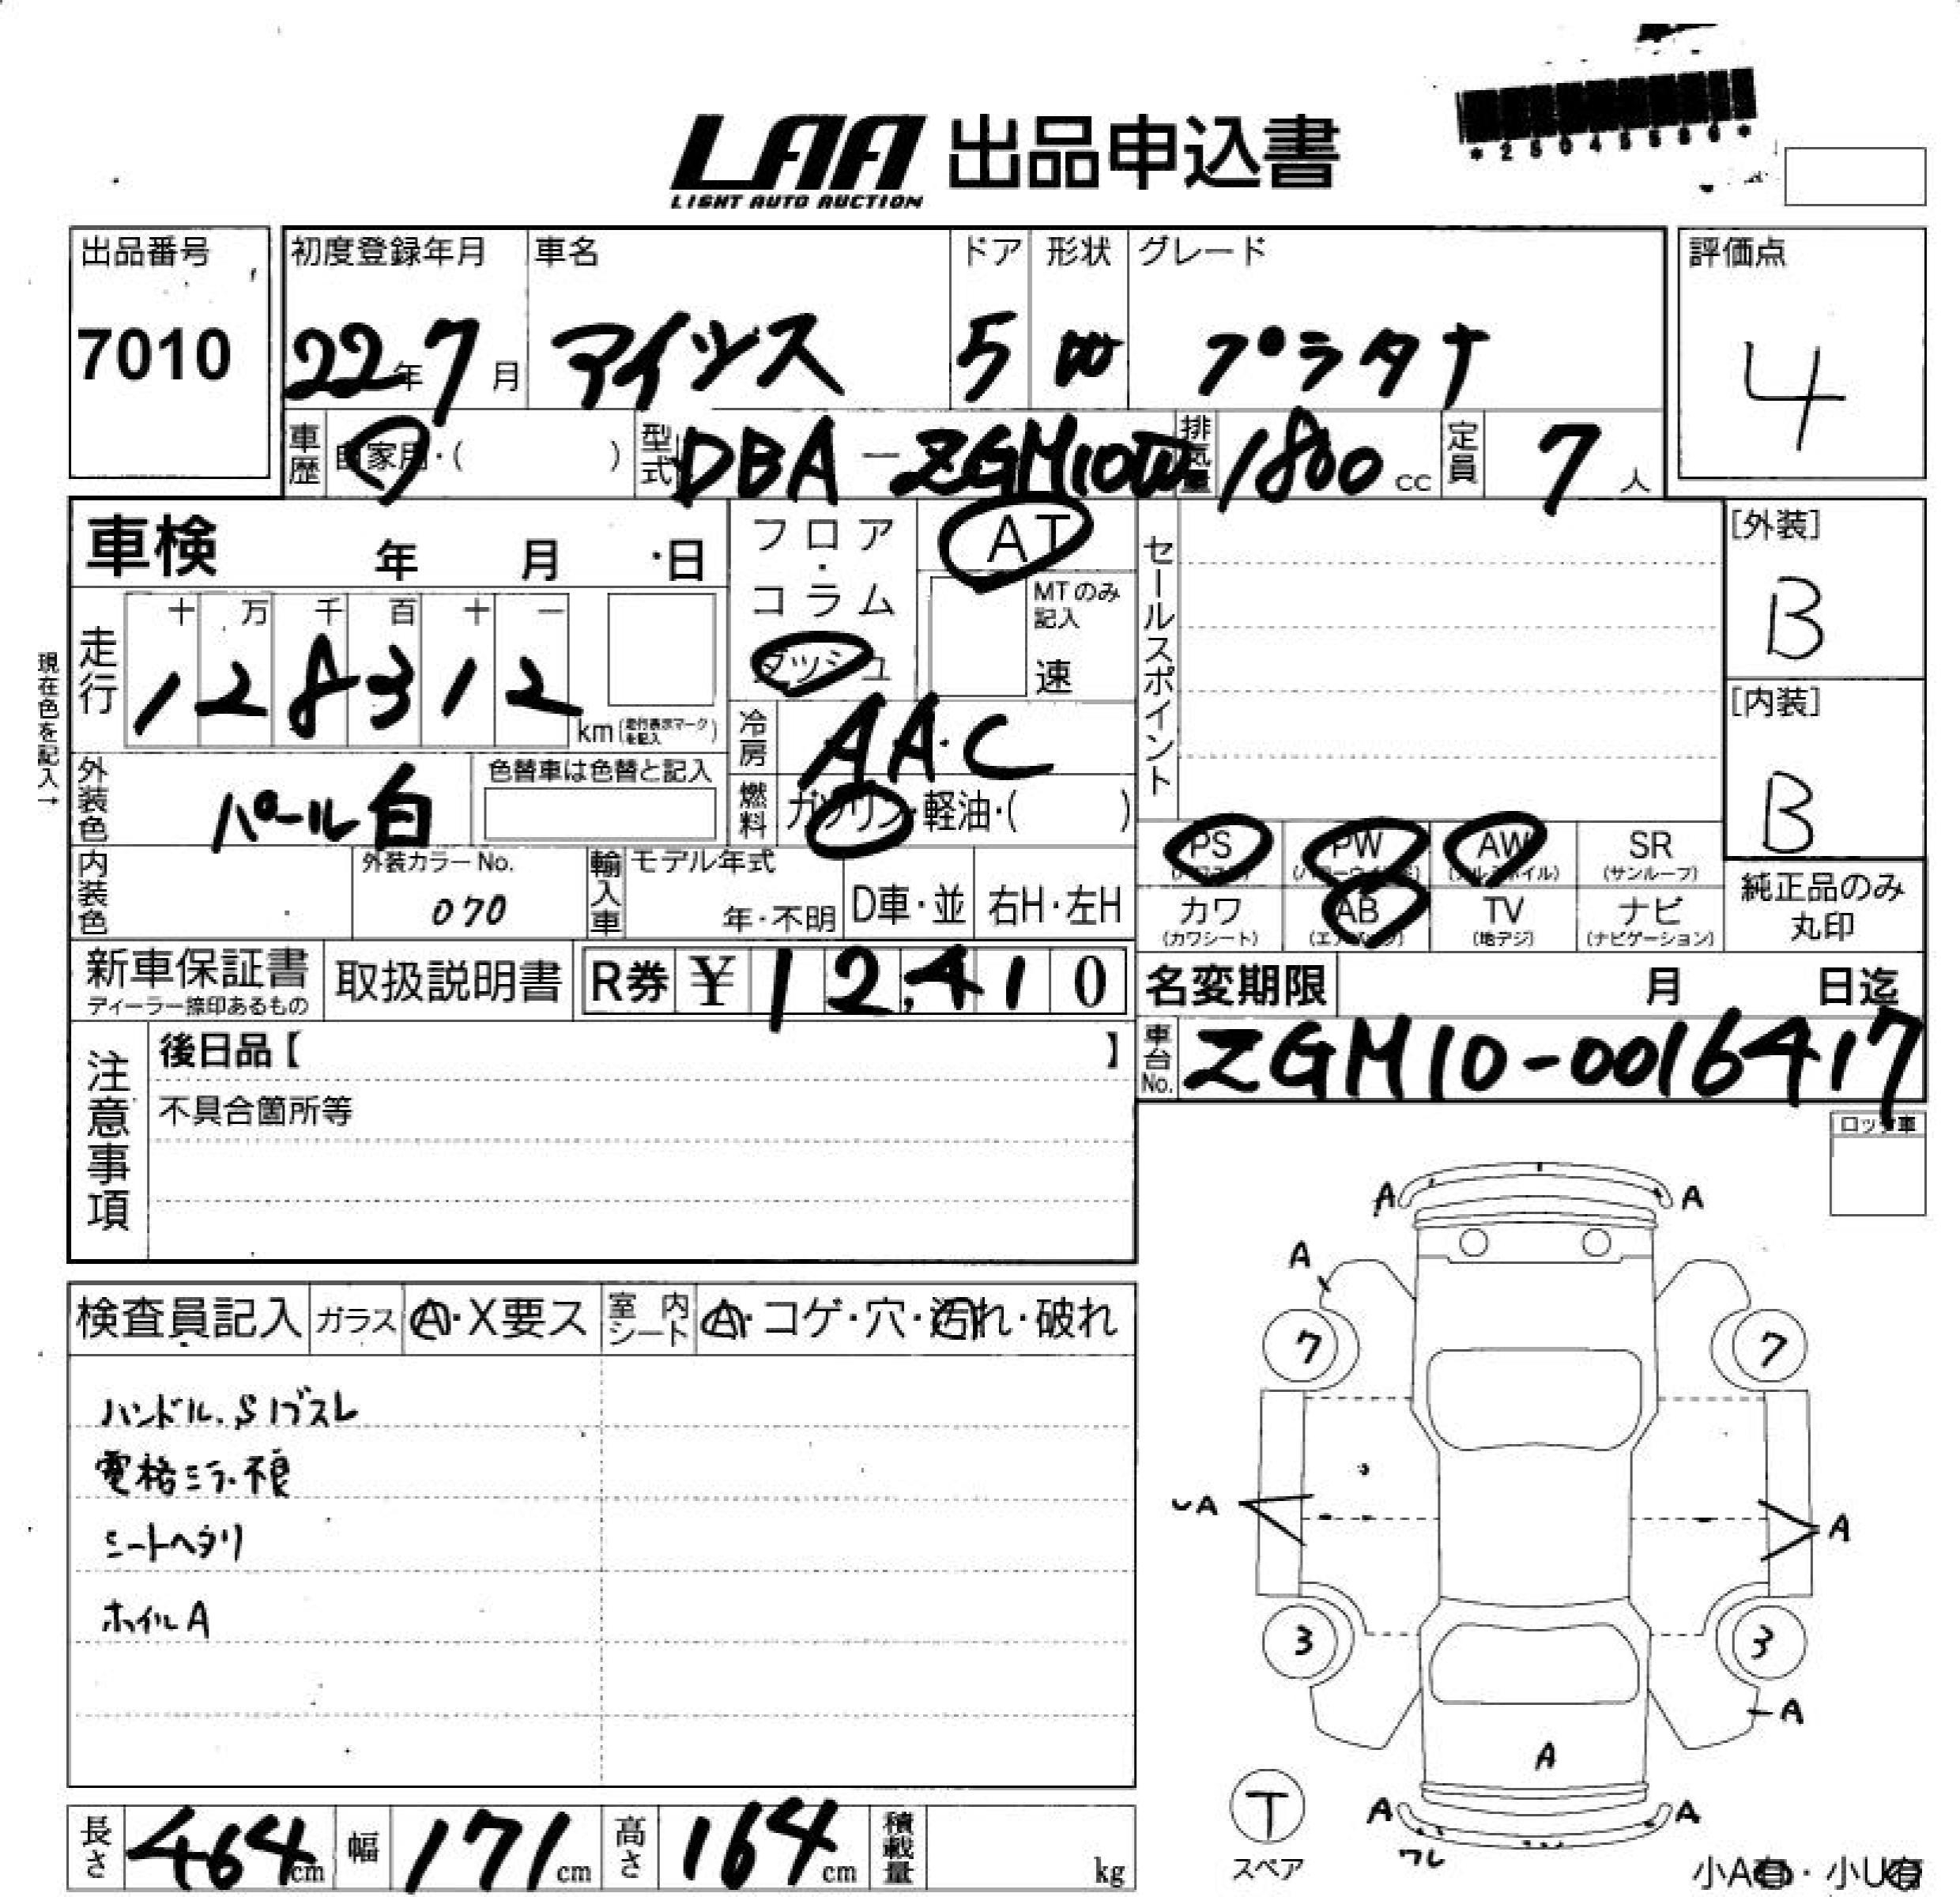 LAA 出品申込書
LIGHT AUTO AUCTION
出品番号
7010
初度登録年月
22年7月
車名
アイシス
ドア
5
形状
W
グレード
プラタナ
評価点
4
車歴
自家用・( )
型式
DBA-ZGM10W
排気量
1800cc
定員
7人
車検 年 月 日
走行
十 万 千 百 十 一
128312
km(走行表示マークを記入)
現在色を記入→
フロア・コラム
ダッシュ
AT
MTのみ記入
速
冷房
AAC
燃料
ガソリン・軽油・( )
外装色
パール白
色替車は色替と記入
内装色
外装カラーNo.
070
輸入車
モデル年式
年・不明
D車・並
右H・左H
セールスポイント
[外装]
B
[内装]
B
PS
PW
AW
(アルミホイル)
SR
(サンルーフ)
カワ
(カワシート)
AB
(エアバッグ)
TV
(地デジ)
ナビ
(ナビゲーション)
純正品のみ丸印
新車保証書
ディーラー捺印あるもの
取扱説明書
R券 ¥12,410
名変期限 月 日迄
車台No.
ZGM10-0016417
注意事項
後日品【 】
不具合箇所等
ロック車
検査員記入
ガラス
A・X要ス
室内シート
A・コゲ・穴・汚れ・破れ
ハンドル.Sノブスレ
電格ミラ.不良
シートヘタリ
ホイルA
A A
A
7 7
A A
3 3
A
A
A A
ワレ
T
スペア
小A有・小U有
長さ 464cm
幅 171cm
高さ 164cm
積載量 kg